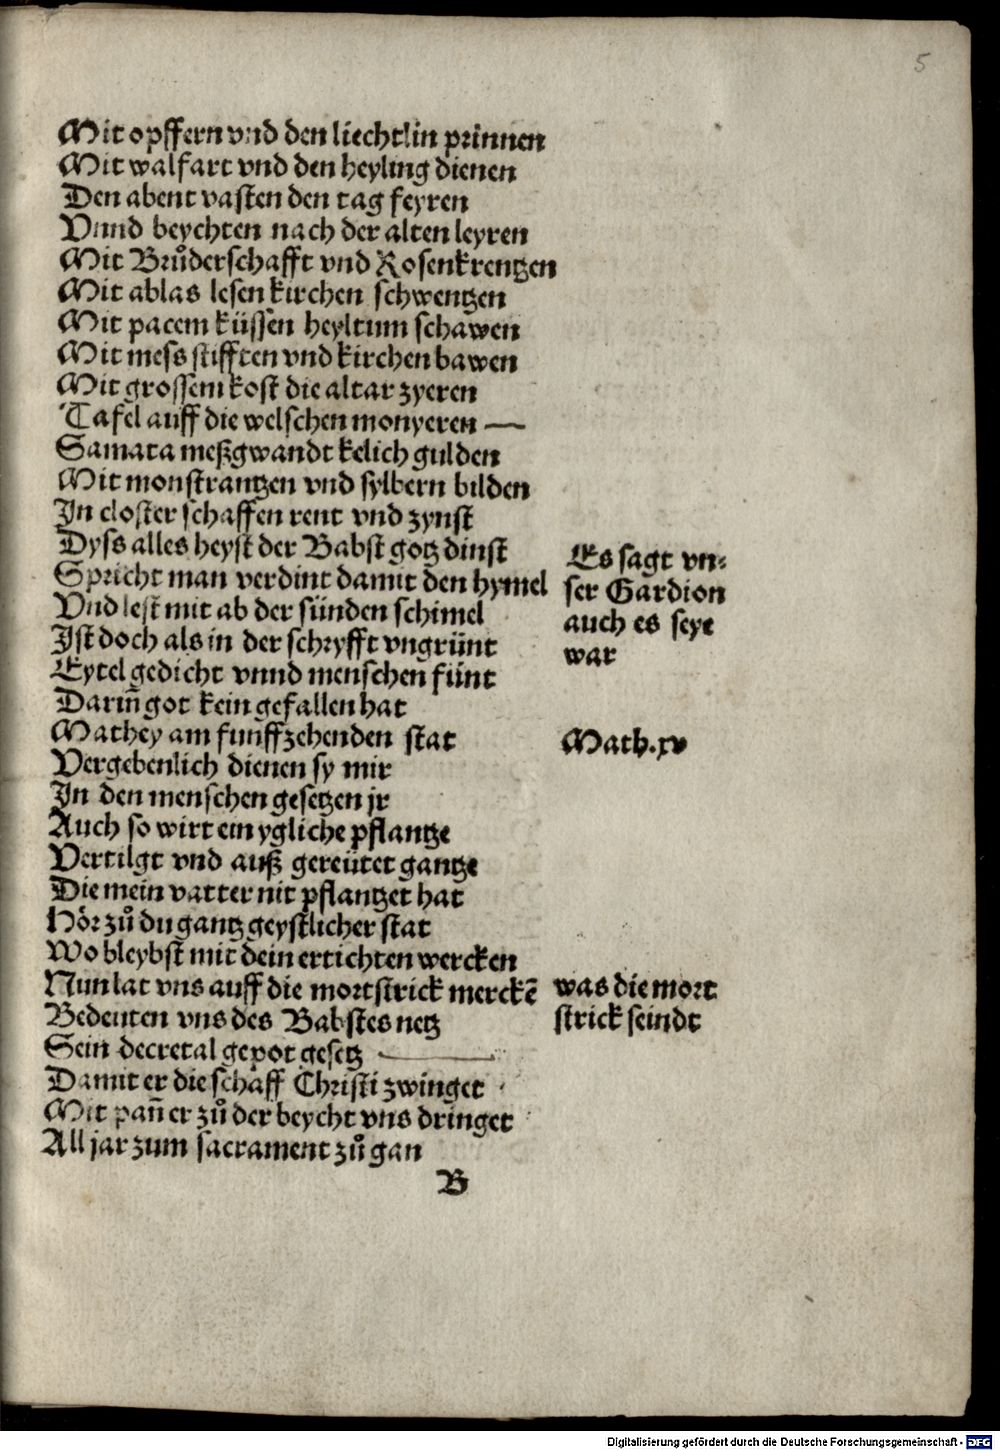 5
Mit opffern vnd den liechtlin prinnen
Mit walfart vnd den heyling dienen
Den abent vasten den tag feyren
Vnnd beychten nach der alten leyren
Mit Brůderschafft vnd Rosenkrentzen
Mit ablas lesen kirchen schwentzen
Mit pacem küssen heyltum schawen
Mit mess stifften vnd kirchen bawen
Mit grossem kost die altar zyeren
Tafel auff die welschen monyeren
Samata meßgwandt kelich gulden
Mit monstrantzen vnd sylbern bilden
In closter schaffen rent vnd zynst
Dyss alles heyst der Babst gotz dinst
Spricht man verdint damit den hymel
Vnd lest mit ab der sünden schimel
Ist doch als in der schryfft vngrünt
Eytel gedicht vnnd menschen fünt
Darin̄ got kein gefallen hat
Mathey am funffzehenden stat
Vergebenlich dienen sy mir
In den menschen gesetzen jr
Auch so wirt ein ygliche pflantze
Vertilgt vnd auß gereütet gantze
Die mein vatter nit pflantzet hat
Hör zů du gantz geystlicher stat
Wo bleybst mit dein ertichten wercken
Nun lat vns auff die mortstrick merckē
Bedeuten vns des Babstes netz
Sein decretal gepot gesetz
Damit er die schaff Christi zwinget
Mit pan̄ er zů der beycht vns dringet
All jar zum sacrament zů gan
B
Es sagt vn⸗
ser Gardion
auch es seye
war
Math.xv
was die mort
strick seindt
Digitalisierung gefördert durch die Deutsche Forschungsgemeinschaft - DFG